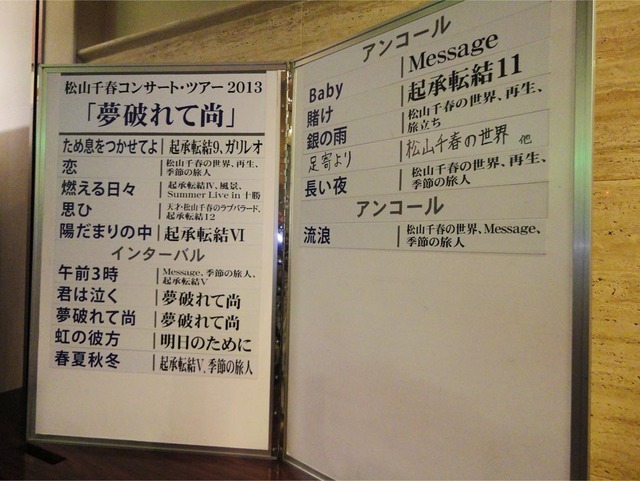 松山千春コンサート・ツアー 2013
「夢破れて尚」
ため息をつかせてよ 起承転結9、ガリレオ
恋 松山千春の世界、再生、
季節の旅人
燃える日々 起承転結Ⅳ、風景、
Summer Live in 十勝
思ひ 天才・松山千春のラブバラード、
起承転結12
陽だまりの中 起承転結Ⅵ
インターバル
午前3時 Message、季節の旅人、
起承転結Ⅴ
君は泣く 夢破れて尚
夢破れて尚 夢破れて尚
虹の彼方 明日のために
春夏秋冬 起承転結Ⅴ、季節の旅人
アンコール
Baby Message
賭け 起承転結11
銀の雨 松山千春の世界、再生、
旅立ち
足寄より 松山千春の世界 他
長い夜 松山千春の世界、再生、
季節の旅人
アンコール
流浪 松山千春の世界、Message、
季節の旅人